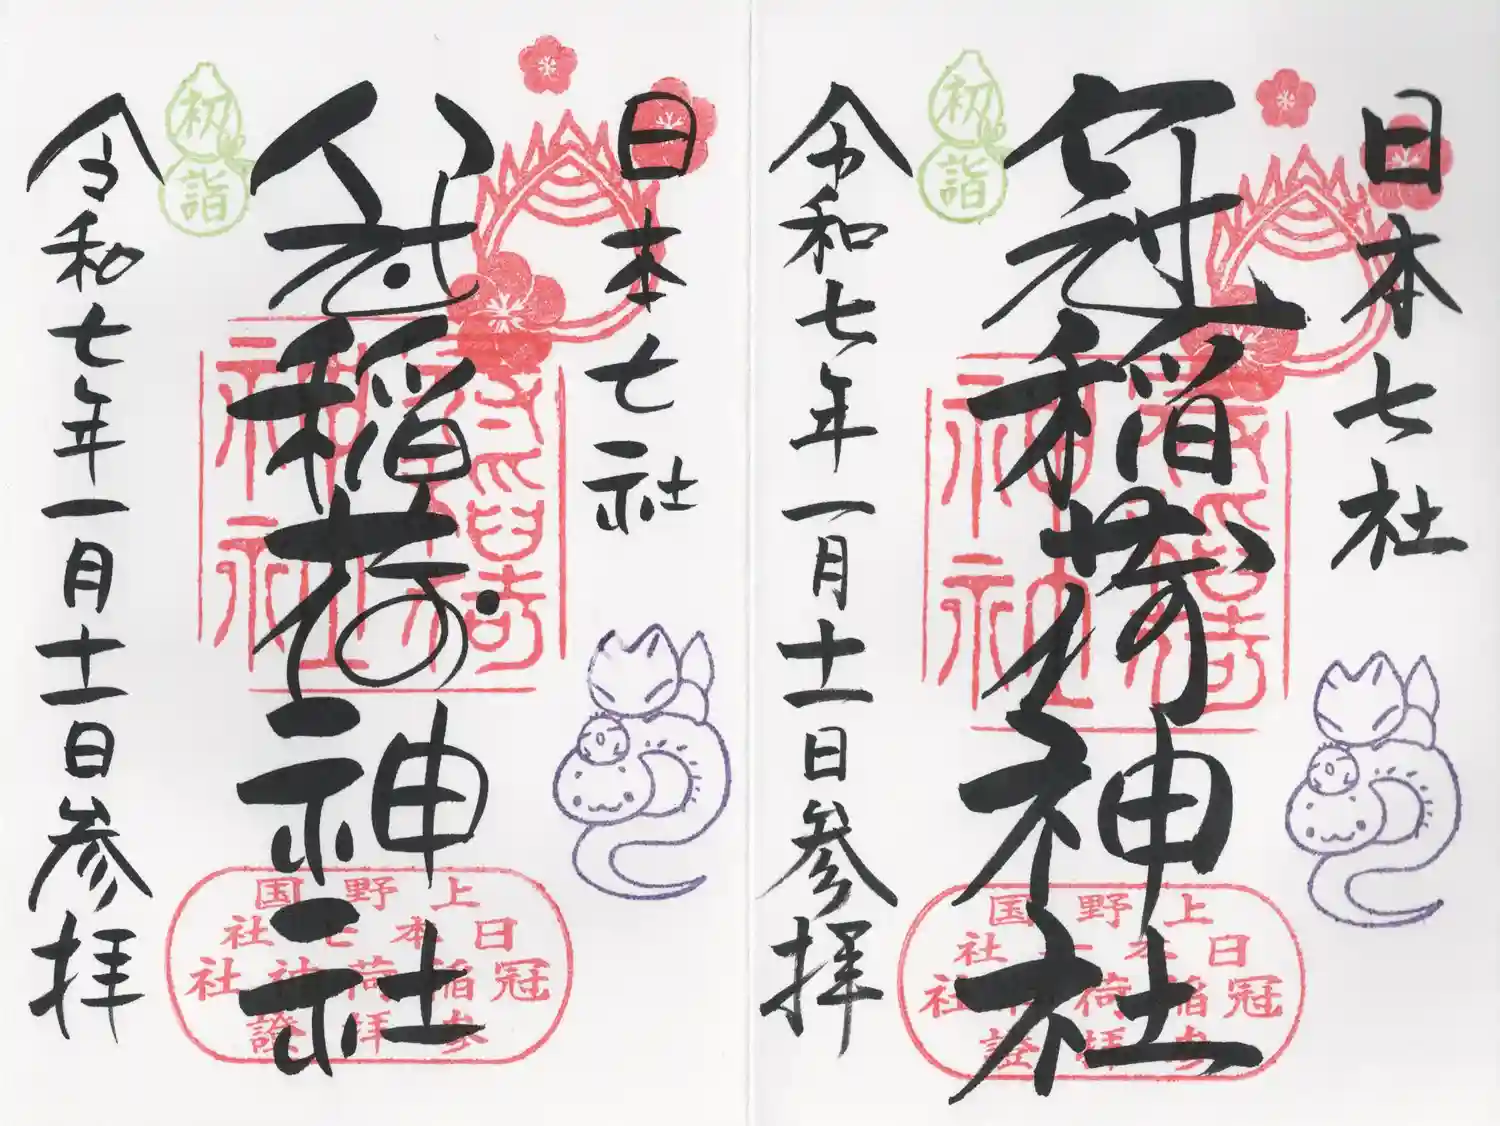 日本七社
冠稲荷神社
令和七年一月十一日参拝
初詣
上野国
日本七社
冠稲荷神社
参拝證
日本七社
冠稲荷神社
令和七年一月十一日参拝
初詣
上野国
日本七社
冠稲荷神社
参拝證